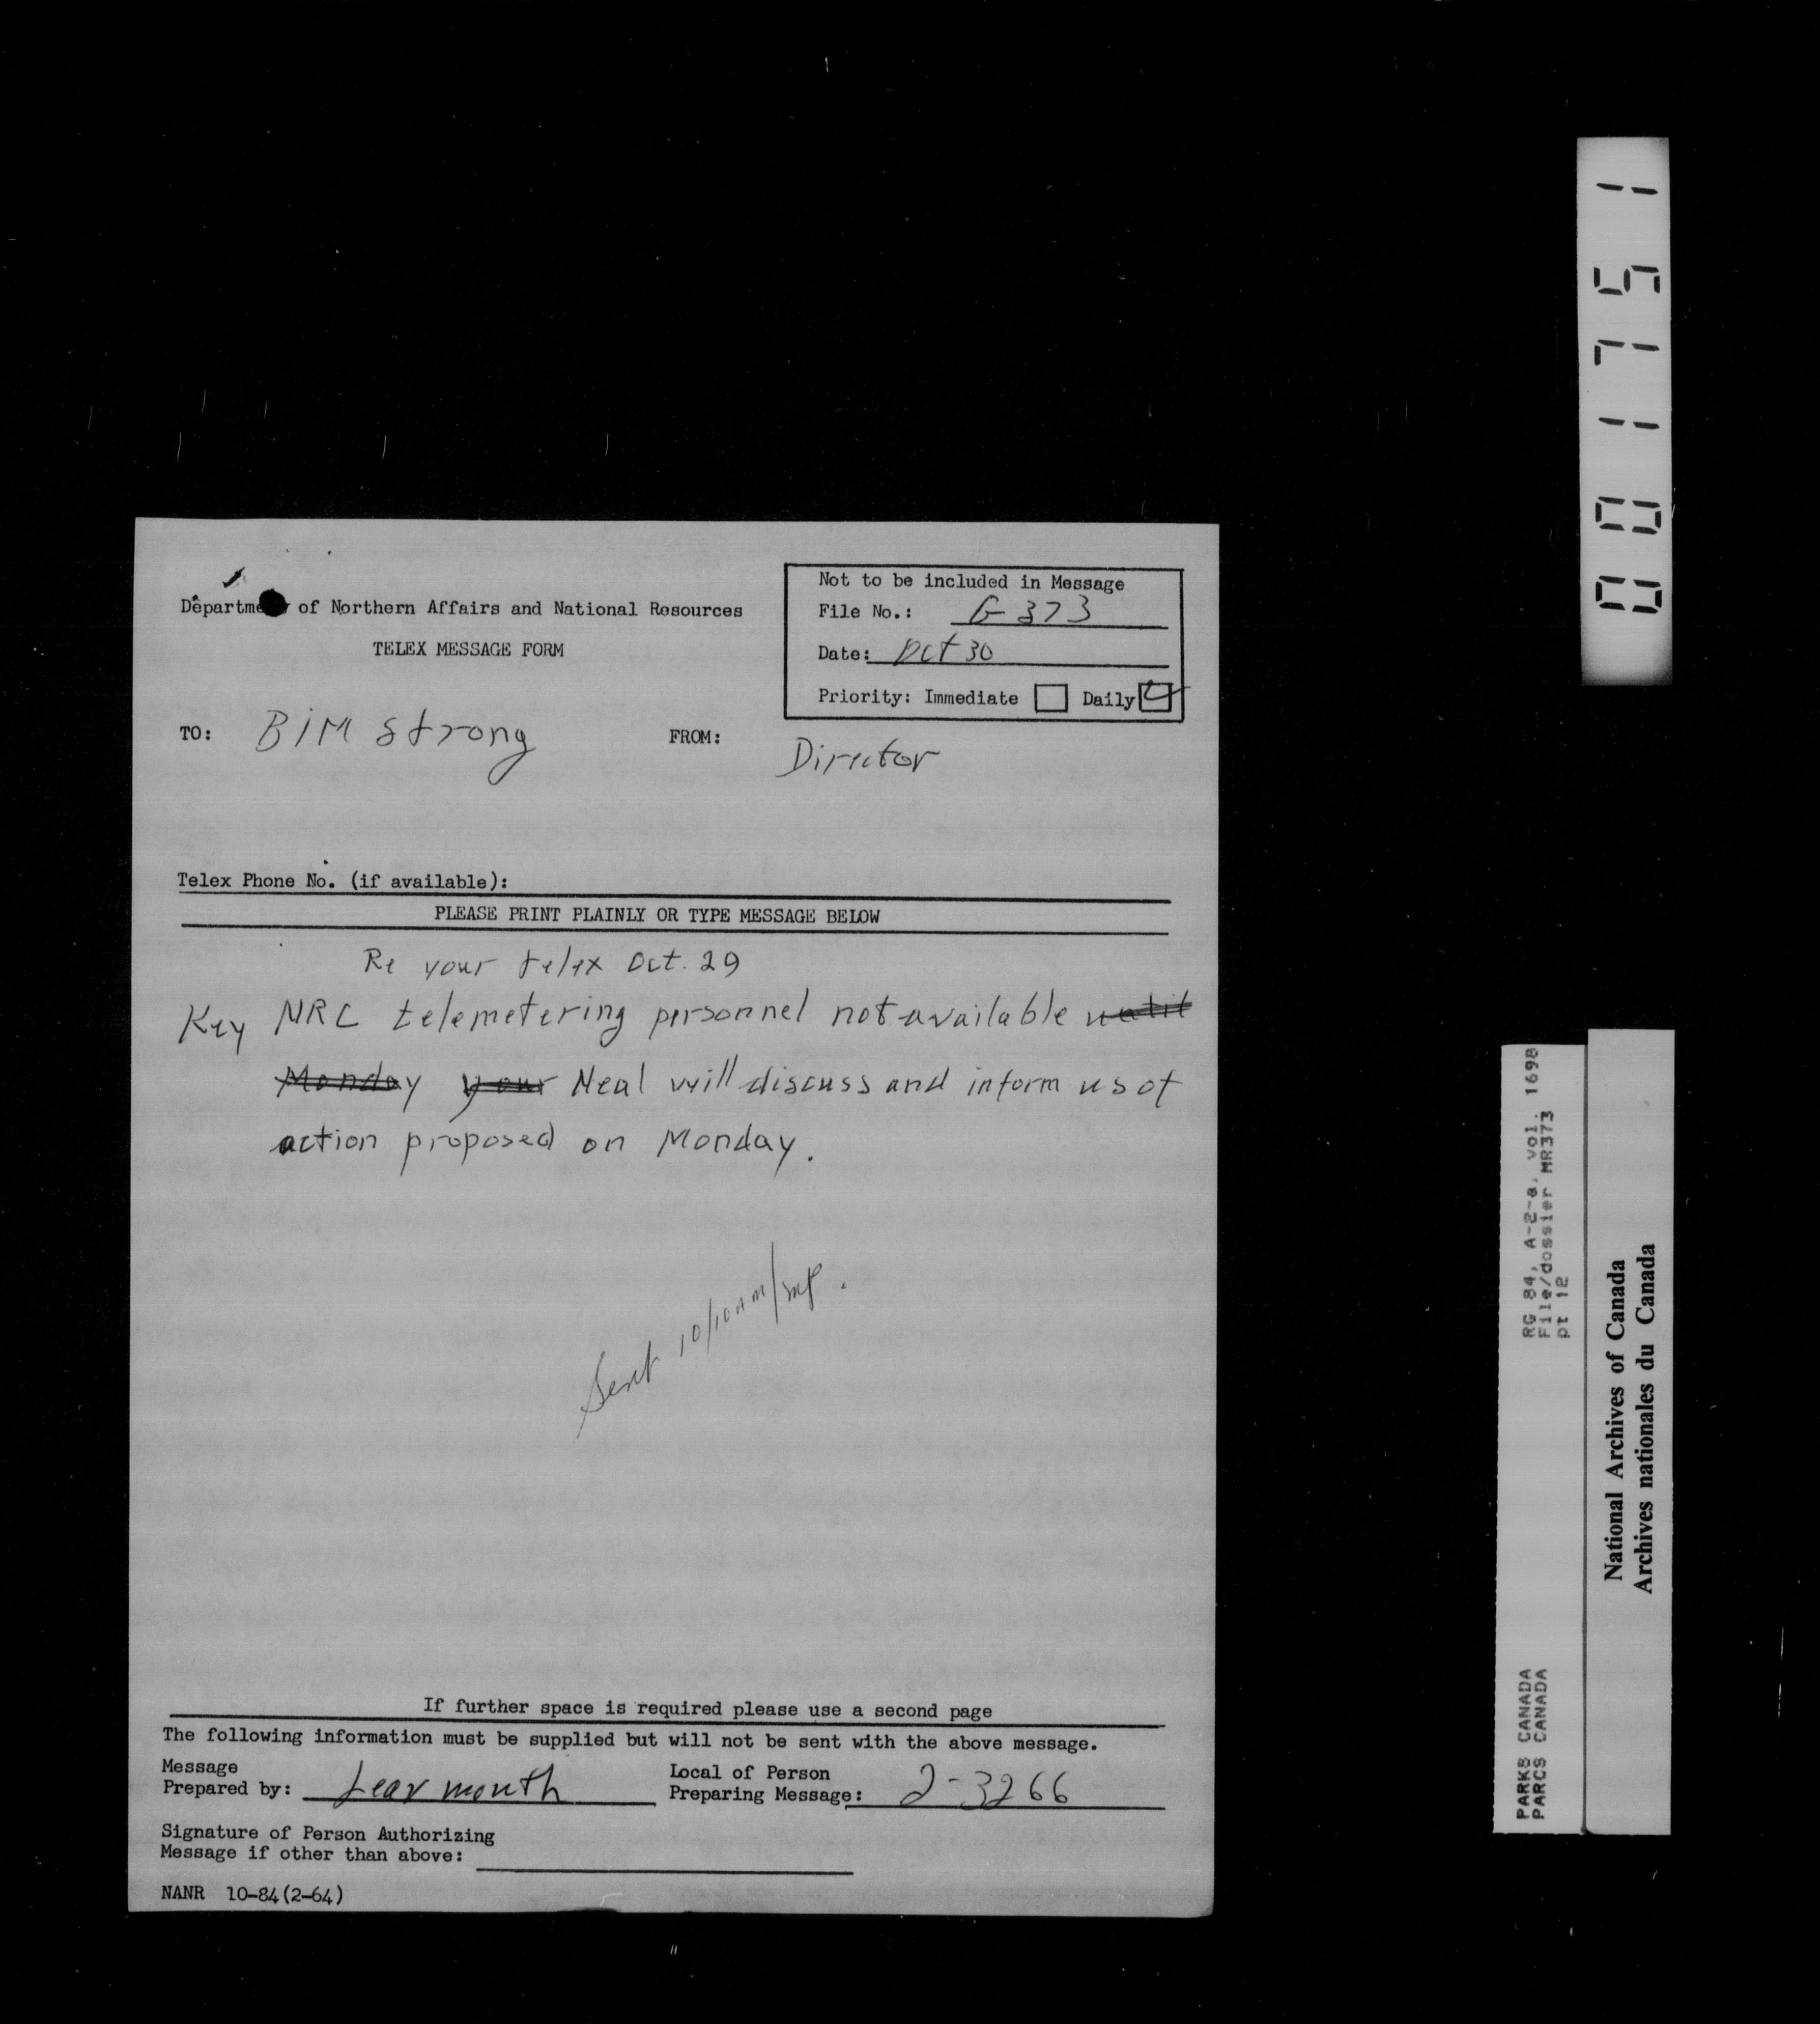 Department of Northern Affairs and National Resources
TELEX MESSAGE FORM
Not to be included in Message
File No.: G-373
Date: Oct 30
Priority: Immediate Daily
TO: BIM strong
FROM: Director
Telex Phone No. (if available):
PLEASE PRINT PLAINLY OR TYPE MESSAGE BELOW
Re your telex Oct. 29
Key NRC telemetering personnel not available until
Monday your Neal will discuss and inform us of
action proposed on Monday.
Sent 10/10 AM/
If further space is required please use a second page
The following information must be supplied but will not be sent with the above message.
Message
Prepared by: Learmonth
Local of Person
Preparing Message: 2-3266
Signature of Person Authorizing
Message if other than above:
NANR 10-84(2-64)
001751
RG 84, A-2-a, vol. 1698
File/dossier MR373
pt 12
PARKS CANADA
PARCS CANADA
National Archives of Canada
Archives nationales du Canada